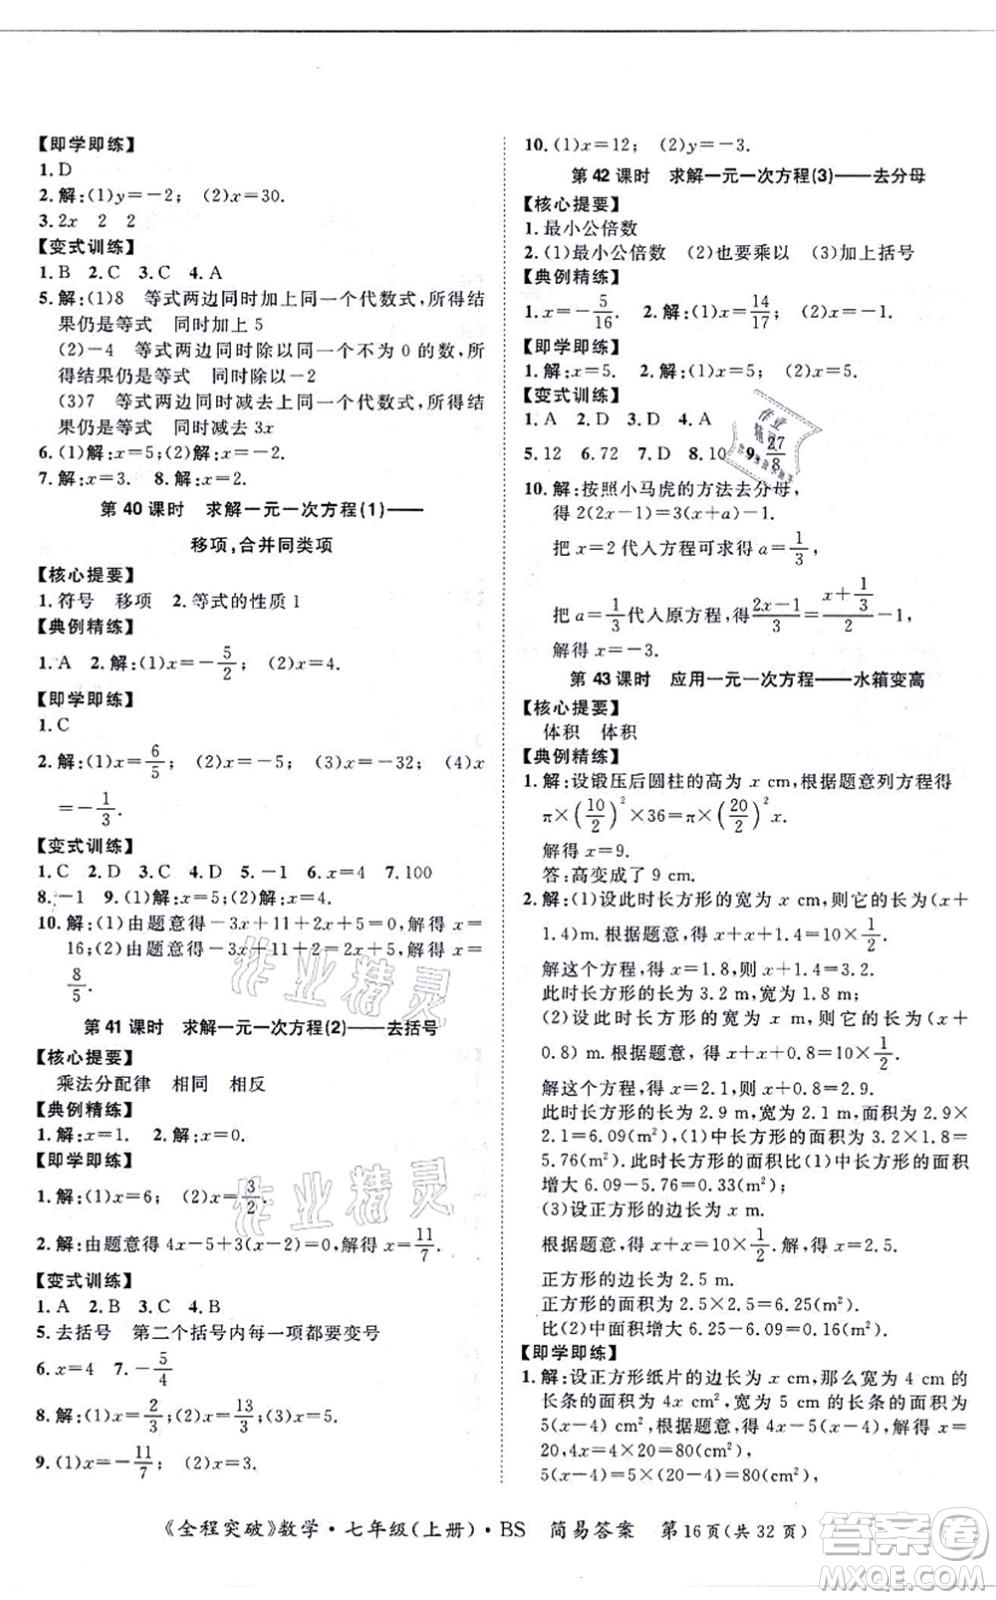 【即学即练】
1. D
2. 解:(1)y=-2; (2)x=30.
3. 2x 2 2
【变式训练】
1. B 2. C 3. C 4. A
5. 解:(1)8 等式两边同时加上同一个代数式,所得结
果仍是等式 同时加上 5
(2)-4 等式两边同时除以同一个不为 0 的数,所
得结果仍是等式 同时除以-2
(3)7 等式两边同时减去同一个代数式,所得结
果仍是等式 同时减去 3x
6. (1)解:x=5;(2)解:x=-2.
7. 解:x=3. 8. 解:x=2.
第 40 课时 求解一元一次方程(1)——
移项,合并同类项
【核心提要】
1. 符号 移项 2. 等式的性质 1
【典例精练】
1. A 2. 解:(1)x=-5/2; (2)x=4.
【即学即练】
1. C
2. 解:(1)x=6/5; (2)x=-5; (3)x=-32; (4)x
=-1/3.
【变式训练】
1. C 2. D 3. C 4. D 5. -1 6. 4 7. 100
8. -1 9. (1)解:x=5;(2)解:x=1.
10. 解:(1)由题意得-3x+11+2x+5=0,解得x=
16;(2)由题意得-3x+11=2x+3,解得x=
8/5.
第 41 课时 求解一元一次方程(2)——去括号
【核心提要】
乘法分配律 相同 相反
【典例精练】
1. 解:x=1. 2. 解:x=0.
【即学即练】
1. 解:(1)x=6; (2)x=3/2.
2. 解:由题意得 4x-5+3(x-2)=0,解得x=11/7.
【变式训练】
1. A 2. B 3. C 4. B
5. 去括号 第二个括号内每一项都要变号
6. x=4 7. -5/4
8. 解:(1)x=2/3; (2)x=13/3; (3)x=5.
9. (1)x=-11/7; (2)x=3.
10. (1)x=12; (2)y=-3.
第 42 课时 求解一元一次方程(3)——去分母
【核心提要】
1. 最小公倍数
2. (1)最小公倍数 (2)也要乘以 (3)加上括号
【典例精练】
1. x=-5/16. 2. 解:(1)x=14/17; (2)x=-1.
【即学即练】
1. 解:x=5. 2. 解:(1)x=5; (2)x=2.
【变式训练】
1. A 2. D 3. D 4. A
5. 12 6. 72 7. D 8. 10 9. 27/8
10. 解:按照小马虎的方法去分母,
得 2(2x-1)=3(x+a)-1,
把 x=2 代入方程可求得 a=1/3,
把 a=1/3代入原方程,得(2x-1)/3=(x+1/3)/2-1,
解得 x=-3.
第 43 课时 应用一元一次方程——水箱变高
【核心提要】
体积 体积
【典例精练】
1. 解:设锻压后圆柱的高为 x cm,根据题意列方程得
π×(10/2)²×36=π×(20/2)²x.
解得 x=9.
答:高变成了 9 cm.
2. 解:(1)设此时长方形的宽为 x m,则它的长为(x+
1.4)m.根据题意,得 x+x+1.4=10×1/2.
解这个方程,得 x=1.8,则 x+1.4=3.2.
此时长方形的长为 3.2 m,宽为 1.8 m;
(2)设此时长方形的宽为 x m,则它的长为(x+
0.8) m.根据题意,得 x+x+0.8=10×1/2.
解这个方程,得 x=2.1,则 x+0.8=2.9.
此时长方形的长为 2.9 m,宽为 2.1 m,面积为 2.9×
2.1=6.09(m²),(1)中长方形的面积为 3.2×1.8=
5.76(m²).此时长方形的面积比(1)中长方形的面积
增大 6.09-5.76=0.33(m²);
(3)设正方形的边长为 x m.
根据题意,得 x+x=10×1/2.解,得 x=2.5.
正方形的边长为 2.5 m,
正方形的面积为 2.5×2.5=6.25(m²),
比(2)中面积增大 6.25-6.09=0.16(m²).
【即学即练】
1. 解:设正方形纸片的边长为 x cm,那么宽为 4 cm 的
长条的面积为 4x cm²,宽为 5 cm 的长条的面积为
5(x-4) cm²,根据题意,得 4x=5(x-4).解得 x=
20,4x=4×20=80(cm²),
5(x-4)=5×(20-4)=80(cm²).
《全程突破》数学·七年级(上册)·BS 简易答案 第16页(共 32 页)
作业精灵
作业精灵
作业精灵
答案圈
MXQE.COM